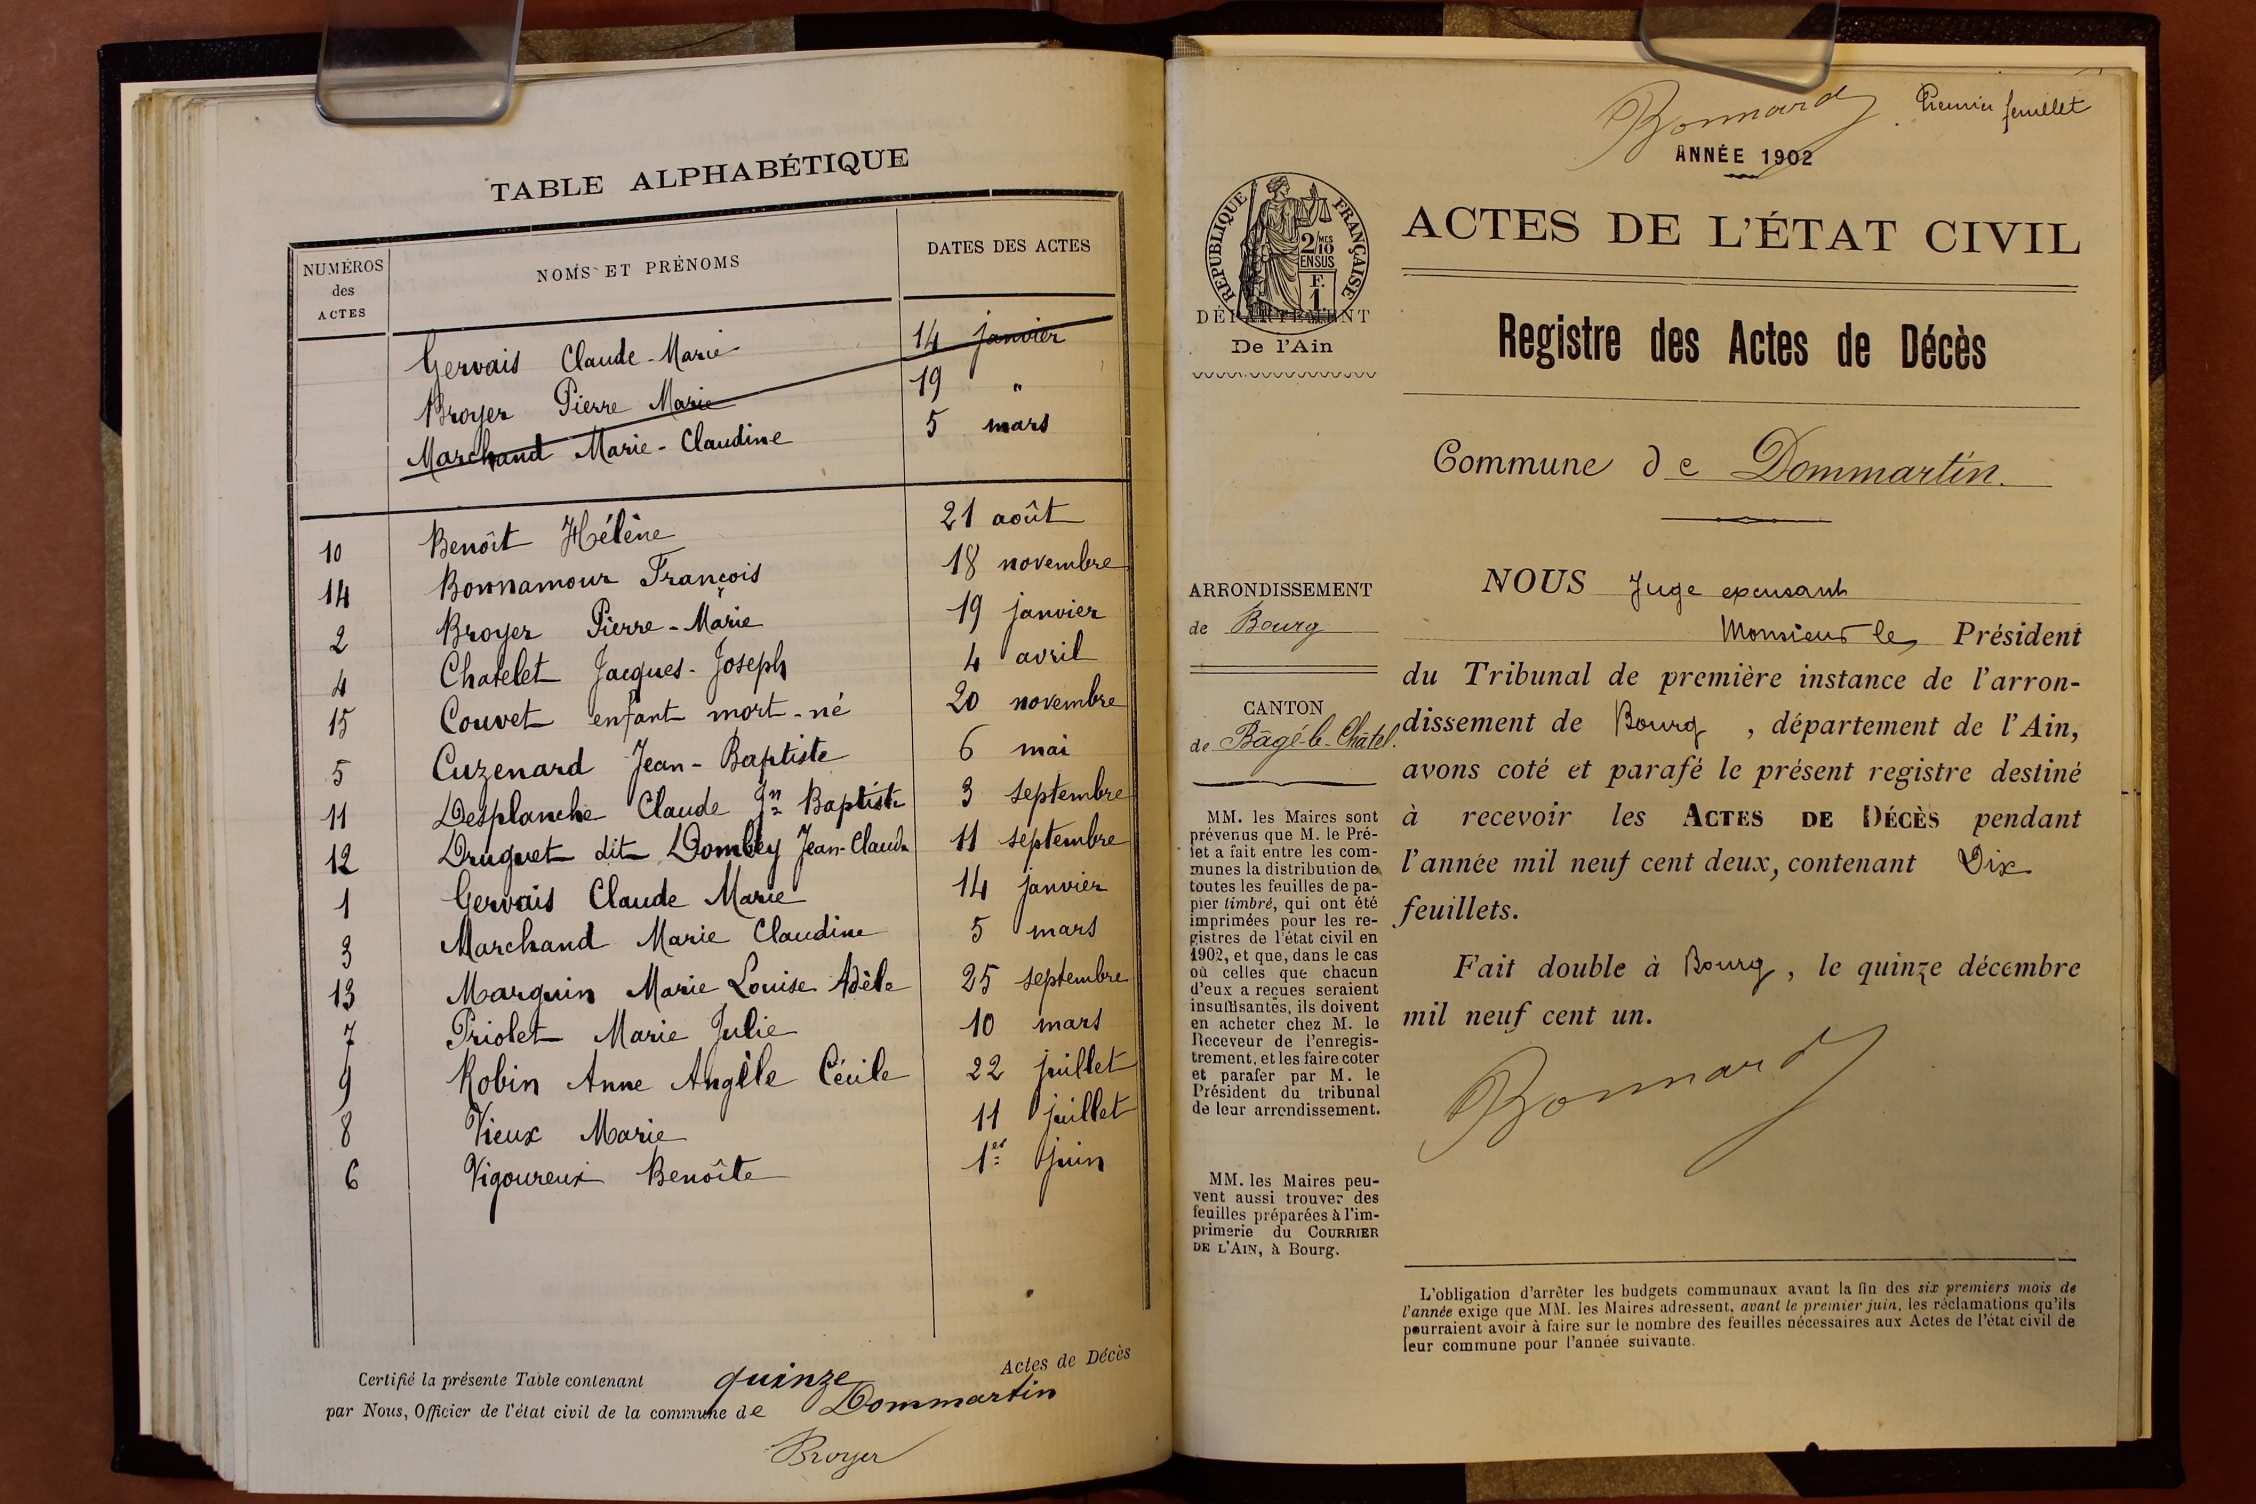 TABLE ALPHABÉTIQUE
NUMÉROS des ACTES NOMS ET PRÉNOMS DATES DES ACTES
Gervais Claude-Marie 14 janvier
Broyer Pierre Marie 19 "
Marchand Marie-Claudine 5 mars
10 Benoît Hélène 21 août
14 Bonnamour François 18 novembre
2 Broyer Pierre-Marie 19 janvier
4 Chatelet Jacques-Joseph 4 avril
15 Couvet enfant mort-né 20 novembre
5 Cuzenard Jean-Baptiste 6 mai
11 Desplanche Claude Jn Baptiste 3 septembre
12 Druguet dit Dombey Jean-Claude 11 septembre
1 Gervais Claude Marie 14 janvier
3 Marchand Marie Claudine 5 mars
13 Marguin Marie Louise Adèle 25 septembre
7 Priolet Marie Julie 10 mars
9 Robin Anne Angèle Cécile 22 juillet
8 Vieux Marie 11 juillet
6 Vigoureux Benoîte 1er juin
Certifié la présente Table contenant quinze Actes de Décès
par Nous, Officier de l'état civil de la commune de Dommartin
Broyer
Bonnard Premier feuillet
ANNÉE 1902
RÉPUBLIQUE FRANÇAISE
2/10 MES
EN SUS
F.
1
DÉPARTEMENT
De l'Ain
ACTES DE L'ÉTAT CIVIL
Registre des Actes de Décès
Commune de Dommartin.
ARRONDISSEMENT
de Bourg
CANTON
de Bâgé-le-Châtel.
MM. les Maires sont
prévenus que M. le Pré-
fet a fait entre les com-
munes la distribution de
toutes les feuilles de pa-
pier timbré, qui ont été
imprimées pour les re-
gistres de l'état civil en
1902, et que, dans le cas
où celles que chacun
d'eux a reçues seraient
insuffisantes, ils doivent
en acheter chez M. le
Receveur de l'enregis-
trement, et les faire coter
et parafer par M. le
Président du tribunal
de leur arrondissement.
MM. les Maires peu-
vent aussi trouver des
feuilles préparées à l'im-
primerie du COURRIER
DE L'AIN, à Bourg.
NOUS Juge excusant
Monsieur le Président
du Tribunal de première instance de l'arron-
dissement de Bourg, département de l'Ain,
avons coté et parafé le présent registre destiné
à recevoir les ACTES DE DÉCÈS pendant
l'année mil neuf cent deux, contenant Dix
feuillets.
Fait double à Bourg, le quinze décembre
mil neuf cent un.
Bonnard
L'obligation d'arrêter les budgets communaux avant la fin des six premiers mois de
l'année exige que MM. les Maires adressent, avant le premier juin, les réclamations qu'ils
pourraient avoir à faire sur le nombre des feuilles nécessaires aux Actes de l'état civil de
leur commune pour l'année suivante.